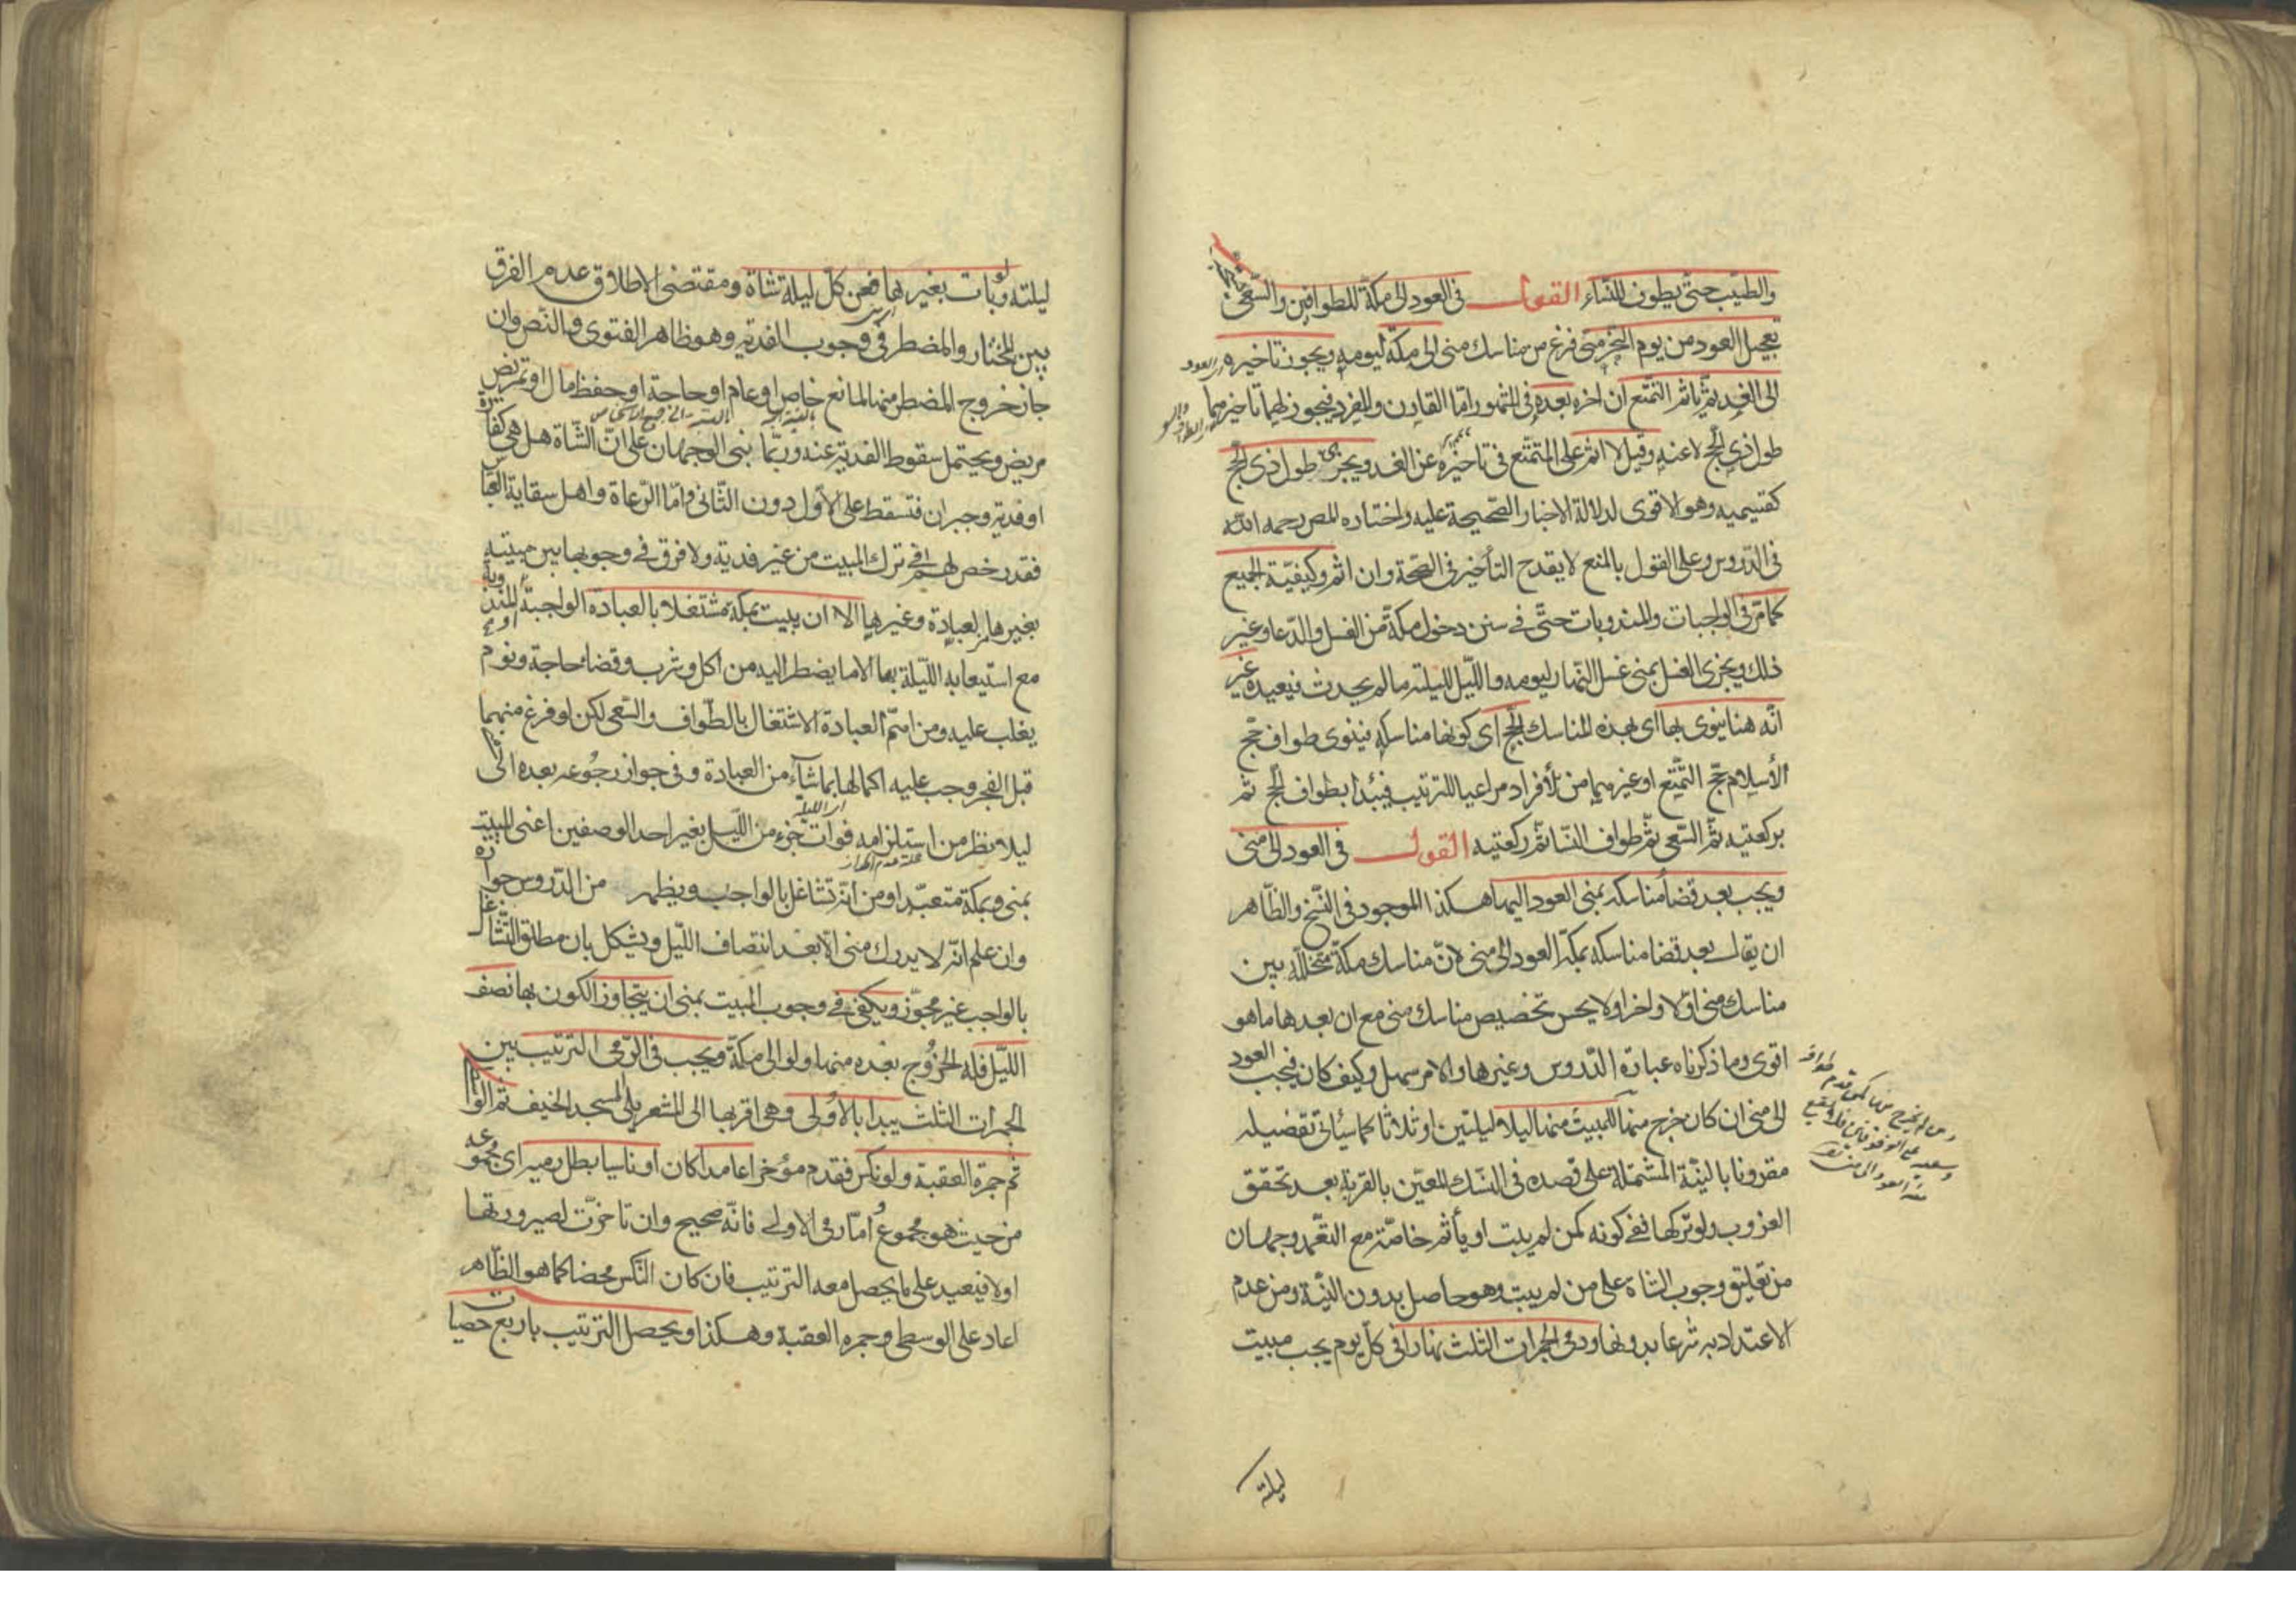 والطيب حتى يطوف للنساء القول في العود الى مكة للطوافين والسعى يستحب
تعجيل العود من يوم النحر متى فرغ من مناسك منى الى مكة ليومه ويجوز تاخيره
اى العود
الى الغد ثم ياثم المتمتع ان اخره بعده في المشهور اما القارن والمفرد فيجوز لهما تاخيرهما
طول ذى الحج لا عنه وقيل لا اثم على المتمتع في تاخيره عن الغد ويجزى طول ذى الحج
كقسيميه وهو الاقوى لدلالة الاخبار الصحيحة عليه واختاره المص رحمه الله
في الدروس وعلى القول بالمنع لا يقدح التأخير في الصحة وان اثم وكيفية الجميع
كما مر في الواجبات والمندوبات حتى في سنن دخول مكة من الغسل والدعا وغير
ذلك ويجزى الغسل بمنى غسل النهار ليومه والليل لليلته ما لم يحدث فيعيده غير
انه هنا ينوى بها اى بهذه المناسك الحج اى كونها مناسكه فينوى طواف حج
الأسلام حج التمتع او غيرهما من الأفراد مراعيا للترتيب فيبدأ بطواف الحج ثم
بركعتيه ثم السعى ثم طواف النسا ثم ركعتيه القول في العود الى منى
ويجب بعد قضا مناسكه بمنى العود اليها هكذا الموجود في النسخ والظاهر
ان يقال بعد قضا مناسكه بمكة العود الى منى لان مناسك مكة متخللة بين
مناسك منى اولا واخرا ولا يحسن تخصيص مناسك منى مع ان بعدها ما هو
اقوى وما ذكرناه عبارة الدروس وغيرها والامر سهل وكيف كان فيجب العود
الى منى ان كان خرج منها للمبيت منها ليلا ليلتين او ثلاثا كما سيأتي تفصيله
مقرونا بالنية المشتملة على قصده في النسك المعين بالقربة بعد تحقق
الغروب ولو تركها ففي كونه كمن لم يبت او يأثم خاصة مع التعمد وجهان
من تعليق وجوب الشاة على من لم يبت وهو حاصل بدون النية ومن عدم
الاعتداد به شرعا بدونها ورمى الجمرات الثلث نهارا في كل يوم يجب مبيت
ليلته
ليلته ولو بات بغيرها فعن كل ليلة شاة ومقتضى الاطلاق عدم الفرق
بين المختار والمضطر في وجوب الفدية وهو ظاهر الفتوى والنص وان
جاز خروج المضطر منها لمانع خاص او عام او حاجة او حفظ مال او تمريض
مريض ويحتمل سقوط الفدية عنه وربما بنى الوجهان على ان الشاة هل هى كفارة
او فدية وجبران فتسقط على الاول دون الثانى واما الرعاة واهل سقاية العباس
فقد رخص لهم في ترك المبيت من غير فدية ولا فرق في وجوبها بين مبيته
بغيرها لعبادة وغيرها الا ان يبيت بمكة مشتغلا بالعبادة الواجبة او المندوبة
مع استيعابه الليلة بها الا ما يضطر اليه من اكل وشرب وقضا حاجة ونوم
يغلب عليه ومن اهم العبادة الاشتغال بالطواف والسعى لكن لو فرغ منهما
قبل الفجر وجب عليه اكمالها بما شآء من العبادة وفي جواز رجوعه بعده الى منى
اى الليلة
ليلا نظر من استلزامه فوات جزء من الليل بغير احد الوصفين اعنى المبيت
بمنى وبمكة متعبدا ومن انه تشاغل بالواجب ويظهر من الدروس جوازه
وان علم انه لا يدرك منى الا بعد انتصاف الليل ويشكل بان مطلق التشاغل
بالواجب غير مجوز ويكفى في وجوب المبيت بمنى ان يتجاوز الكون بها نصف
الليل فله الخروج بعده منها ولو الى مكة ويجب في الرمى الترتيب بين
الجمرات الثلث يبدا بالاولى وهى اقربها الى المشعر يلى المسجد الخيف ثم الوسطى
ثم جمرة العقبة ولو نكس فقدم مؤخرا عامدا كان او ناسيا بطل رميه اى مجموعه
من حيث هو مجموع اما رمى الاولى فانه صحيح وان تاخرت لصيرورتها
اولا فيعيد على ما يحصل معه الترتيب فان كان النكس محضا كما هو الظاهر
اعاد على الوسطى وجمره العقبة وهكذا ويحصل الترتيب باربع حصيات